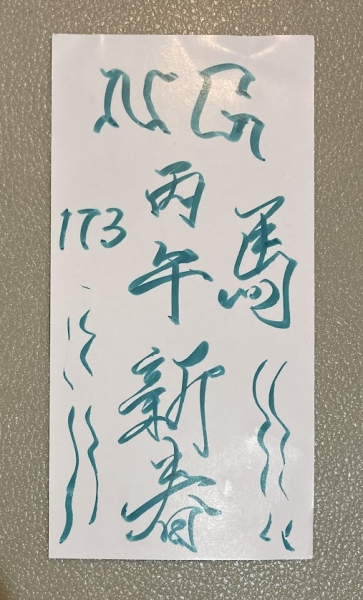 NG
丙午新春
馬
173